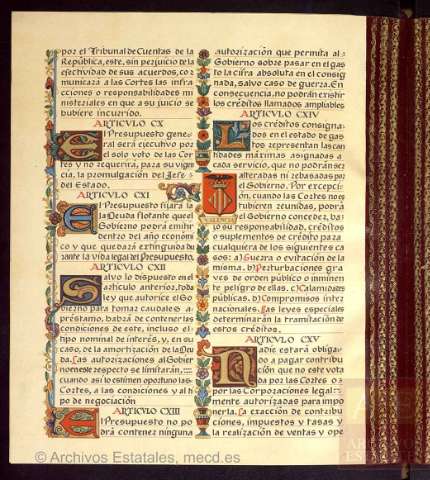 por el Tribunal de Cuentas de la
República, este, sin perjuicio de la
efectividad de sus acuerdos, co-
municará a las Cortes las infra-
cciones o responsabilidades mi-
nisteriales en que a su juicio se
hubiere incurrido.
ARTICULO CX
El Presupuesto gene-
ral será ejecutivo por
el solo voto de las Cor-
tes y no requerirá, para su vigen-
cia, la promulgación del Jefe
del Estado.
ARTICULO CXI
El Presupuesto fijará la
la Deuda flotante que el
Gobierno podrá emitir
dentro del año económi-
co y que quedará extinguida du-
rante la vida legal del Presupuesto.
ARTICULO CXII
Salvo lo dispuesto en el
artículo anterior, toda
ley que autorice al Go-
bierno para tomar caudales a
préstamo, habrá de contener las
condiciones de este, incluso el
tipo nominal de interés, y, en su
caso, de la amortización de la Deu-
da. Las autorizaciones al Gobier-
no en este respecto se limitarán,
cuando así lo estimen oportuno las
Cortes, a las condiciones y al ti-
po de negociación
ARTICULO CXIII
El Presupuesto no po-
drá contener ninguna
autorización que permita al
Gobierno sobre pasar en el gas-
to la cifra absoluta en el consig-
nada, salvo caso de guerra. En
consecuencia, no podrán existir
los créditos llamados ampliables
ARTICULO CXIV
Los créditos consigna-
dos en el estado de gas-
tos representan las can-
tidades máximas asignadas a
cada servicio, que no podrán ser
alteradas ni rebasadas por
el Gobierno. Por excepci-
ón, cuando las Cortes no es-
tubieren reunidas, podrá
el Gobierno conceder, ba-
jo su responsabilidad, créditos
o suplementos de crédito para
cualquiera de los siguientes ca-
sos: a) Guerra o evitación de la
misma. b) Perturbaciones gra-
ves de orden público o inminen-
te peligro de ellas. c) Calamidades
públicas. d) Compromisos inter-
nacionales. Las leyes especiales
determinarán la tramitación de
estos créditos.
ARTICULO CXV
Nadie estará obliga-
do a pagar contribu-
ción que no esté vota-
da por las Cortes o
por las Corporaciones legal-
mente autorizadas para impo-
nerla. La exacción de contribu-
ciones, impuestos y tasas y
la realización de ventas y ope-
VALENCIA
© Archivos Estatales, mecd.es
ARCHIVOS
ESTATALES